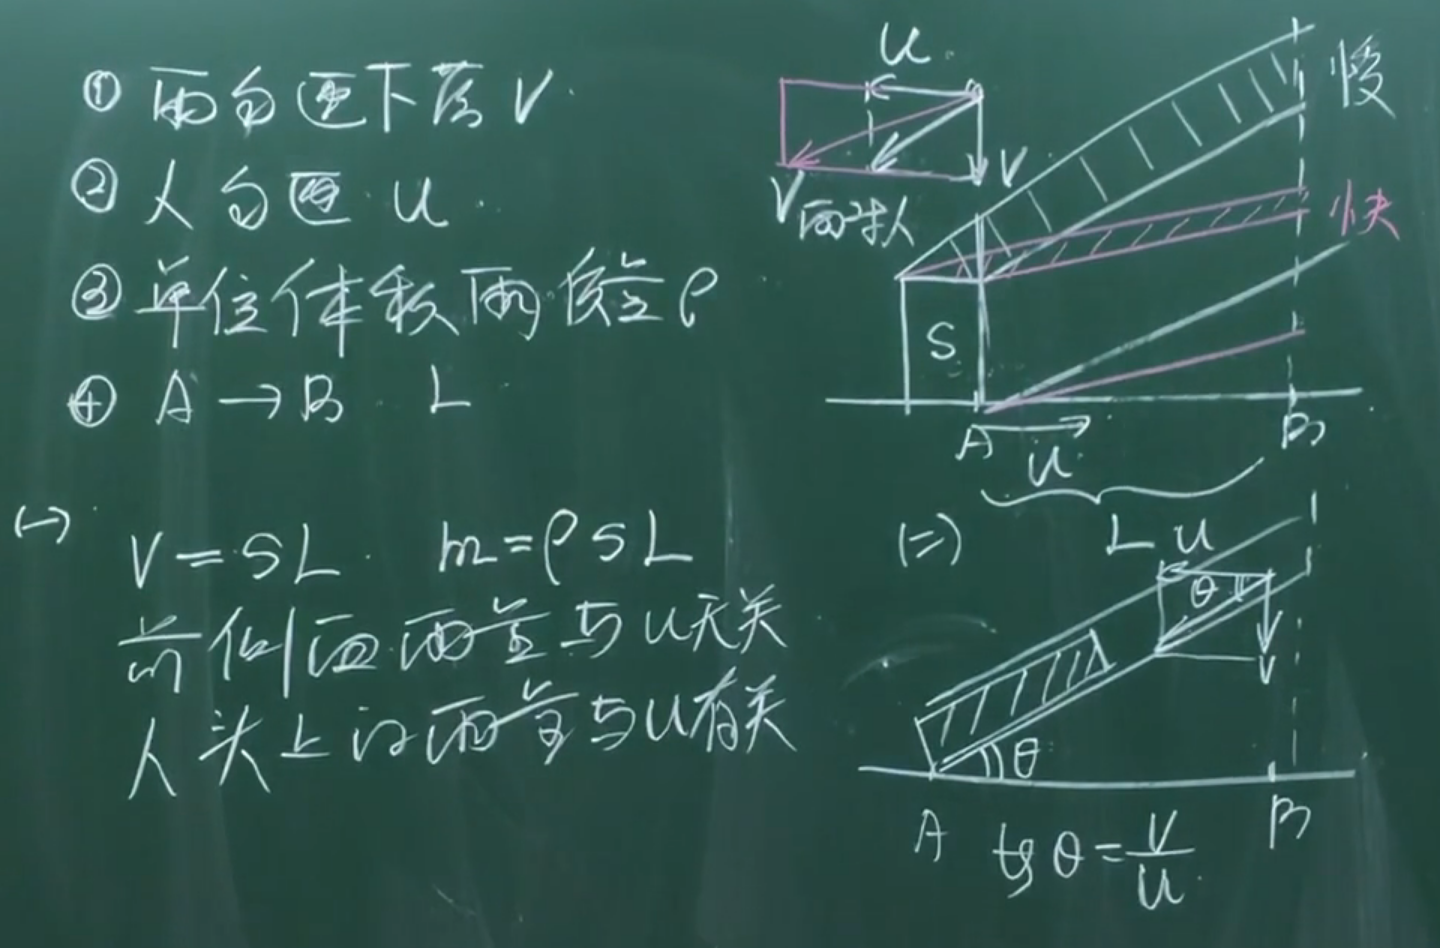 ① 雨匀速下落 V
② 人匀速 u
③ 单位体积雨质量 ρ
④ A → B L
(一)
V = SL m = ρSL
前侧面雨量与u无关
人头上的雨量与u有关
u
V
V雨对人
慢
快
S
A
B
u
L
(二)
u
θ
V
θ
A
B
tg θ = V/u